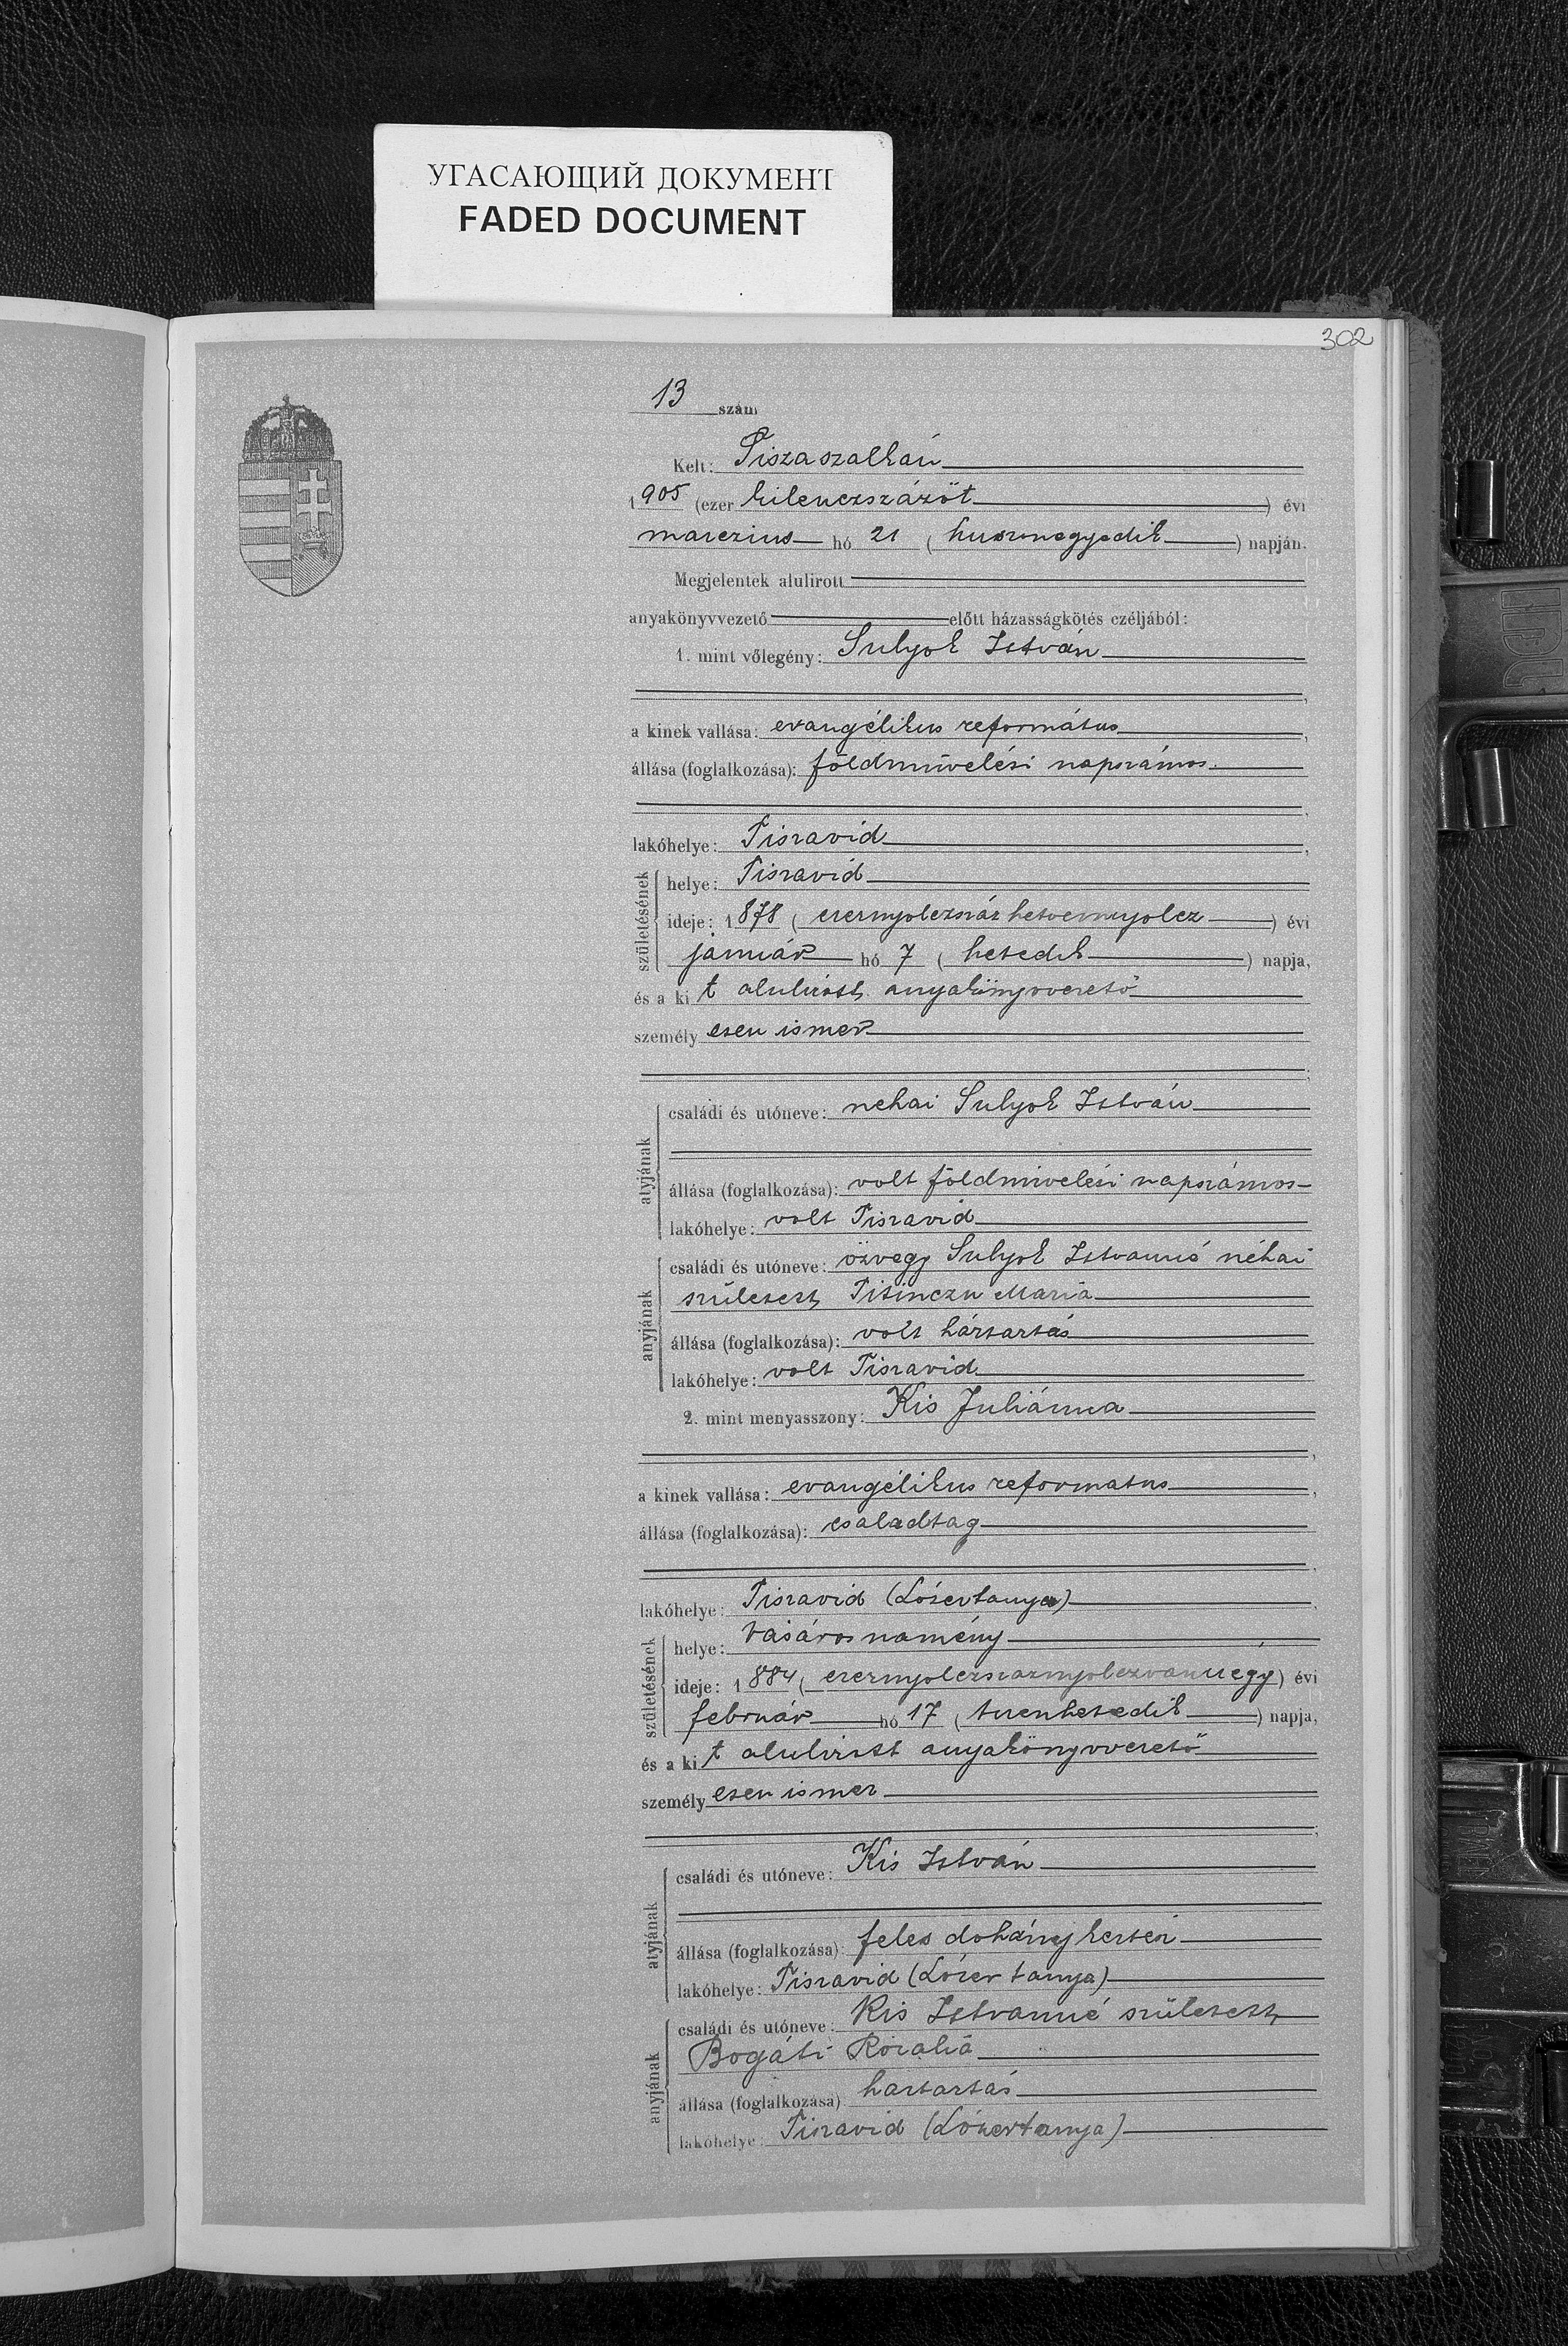 УГАСАЮЩИЙ ДОКУМЕНТ
FADED DOCUMENT
302
13 szám
Kelt: Tiszaszalkán
1905 (ezer kilenczszázöt) évi
marczius hó 21 (huszonegyedik) napján.
Megjelentek alulirott
anyakönyvvezető előtt házasságkötés czéljából:
1. mint vőlegény: Sulyok István
a kinek vallása: evangélikus református,
állása (foglalkozása): földmüvelési napszámos
lakóhelye: Tiszavid,
születésének
helye: Tiszavid
ideje: 1878 (ezernyolczszáz hetvennyolcz) évi
január hó 7 (hetedik) napja,
és a kit alulirott anyakönyvvezető
személyesen ismer
atyjának
családi és utóneve: nehai Sulyok István
állása (foglalkozása): volt földmivelési napszámos
lakóhelye: volt Tiszavid
anyjának
családi és utóneve: özvegy Sulyok Istvanné néhai
született Maria
állása (foglalkozása): volt háztartás
lakóhelye: volt Tiszavid
2. mint menyasszony: Kis Juliánna
a kinek vallása: evangélikus reformatus,
állása (foglalkozása): csaladtag
lakóhelye: Tiszavid (Lózertanya)
születésének
helye: Vasáros namény
ideje: 1884 (ezernyolczszaznyolczvannégy) évi
február hó 17 (tizenhetedik) napja,
és a kit alulirott anyakönyvvezető
személyesen ismer
atyjának
családi és utóneve: Kis István
állása (foglalkozása): feles dohány kertész
lakóhelye: Tiszavid (Lózer tanya)
anyjának
családi és utóneve: Kis Istvanné született
Bogáti Rozalia
állása (foglalkozása) haztartás
lakóhelye: Tiszavid (Lózertanya)